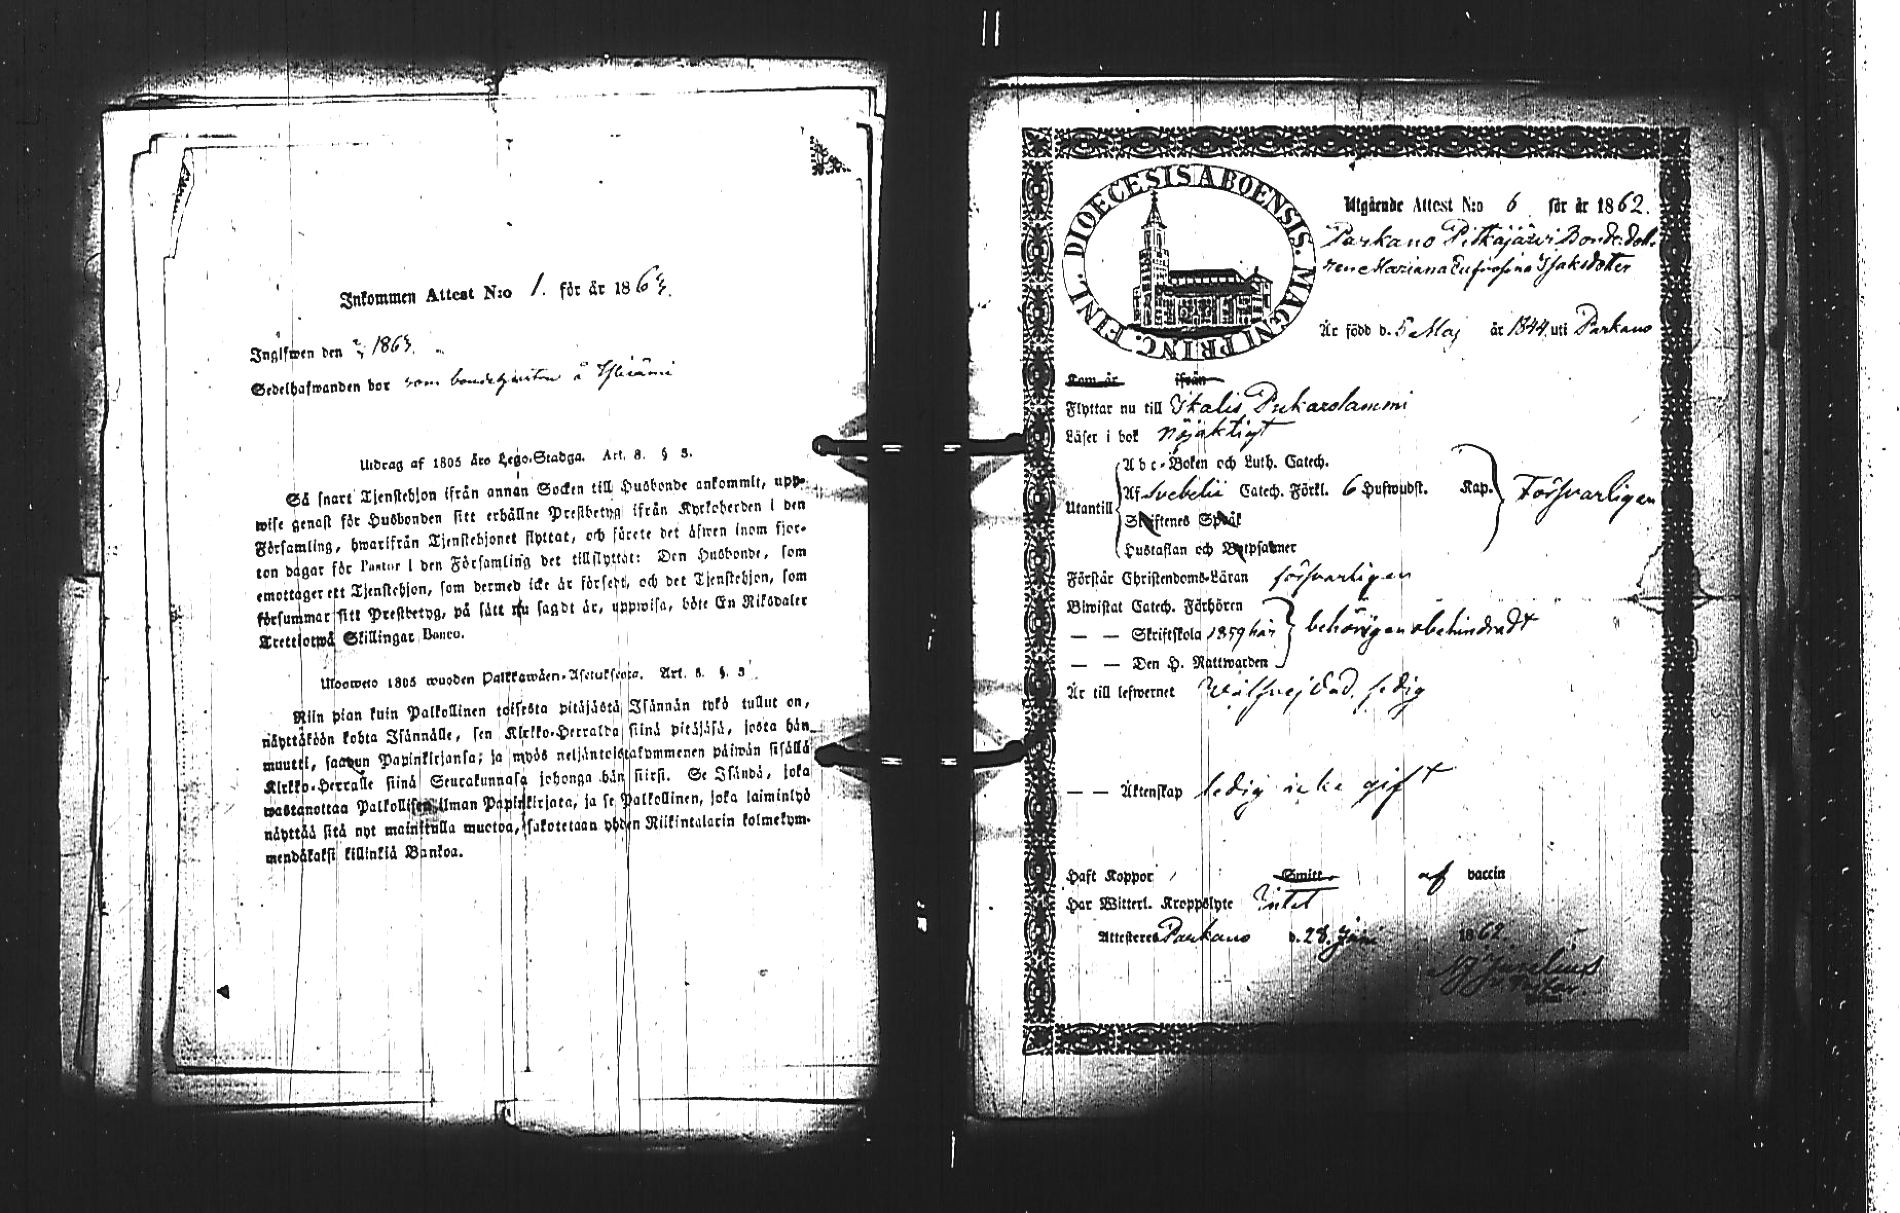 Inkommen Attest N:o 1. för år 186
Inglfwen den 1863.
Sedelhafwanden bor som å
Utdrag af 1805 års Lego-Stadga. Art. 8. § 3.
Så snart Tjenstehjon ifrån annan Socken till Husbonde ankommit, upp-
wise genast för Husbonden sitt erhållne Prestbetyg ifrån Kyrkoherden i den
Församling, hwarifrån Tjenstehjonet flyttat, och förete det äfwen inom fjor-
ton dagar för Pastor i den Församling det tillflyttat: Den Husbonde, som
emottager ett Tjenstehjon, som dermed icke är försedt, och det Tjenstehjon, som
försummar sitt Prestbetyg, på sätt nu sagdt är, uppwisa, böte En Riksdaler
Trettiotwå Skillingar Banco.
Ulosweto 1805 wuoden Palkkawäen-Asetuksesta. Art. 8. §. 3.
Niin pian kuin Palkollinen toisesta pitäjästä Isännän tykö tullut on,
näyttäköön kohta Isännälle, sen Kirkko-Herralda siinä pitäjäsä, josta hän
muutti, saadun Papinkirjansa; ja myös neljäntoistakymmenen päiwän sisällä
Kirkko-Herralle siinä Seurakunnasa johonga hän siirsi. Se Isändä, joka
wastanottaa Palkollisen ilman Papinkirjata, ja se Palkollinen, joka laiminlyö
näyttää sitä nyt mainitulla muotoa, sakotetaan yhden Riikintalarin kolmekym-
mendäkaksi killinkiä Bankoa.
DIOECESIS ABOENSIS. MAGNI PRINC. FINL.
Utgående Attest N:o 6 för år 1862.
Parkano Pitkäjärvi Bonde dot-
tren Mariana Eufrosina Isaksdotter
Är född d. 5 Maj år 1844 uti Parkano
Kom år ifrån
Flyttar nu till Ikalis
Läser i bok nöjaktigt
Utantill
Abc-Boken och Luth. Catech.
Af Svebelii Catech. Förkl. 6 Hufwudst. Kap. Försvarligen
Skriftenes Språk
Hustaflan och Botpsalmer
Förstår Christendoms-Läran försvarligen
Biwistat Catech. Förhören
— — Skriftskola 1859 här behörigen obehindradt
— — Den H. Nattwarden
Är till lefwernet ledig
— — Äktenskap ledig icke gift
Haft Koppor Smitt af vaccin
Har Witterl. Kroppslyte Intet
Attesteres Parkano d. 28. Juni 1862.